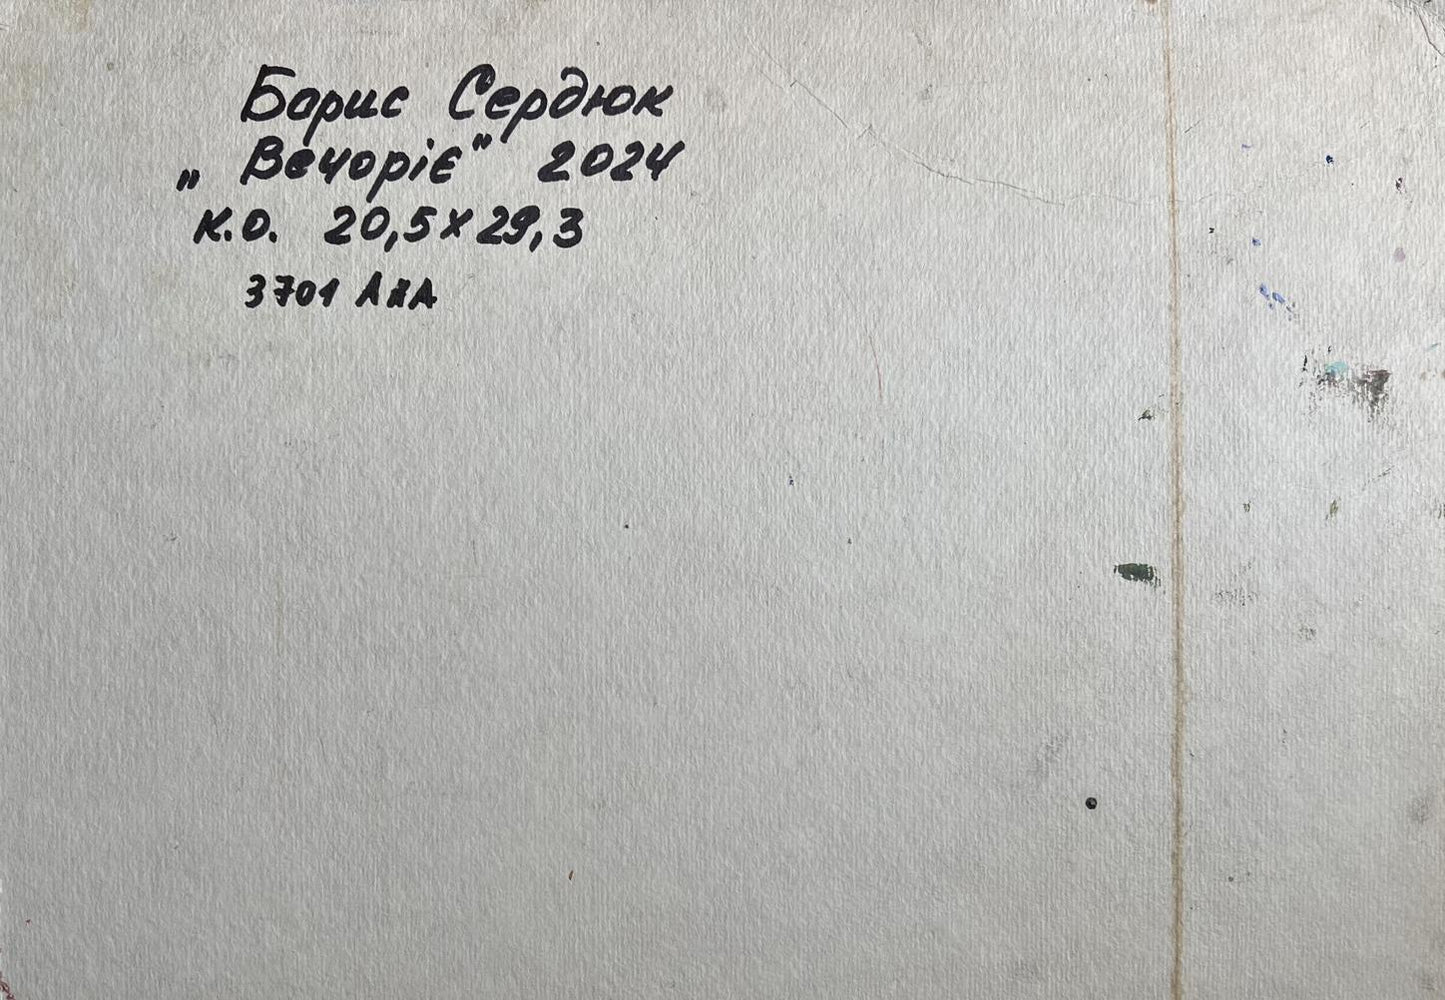 Борис Сердюк
„Вечоріє" 2024
к.о. 20,5х29,3
3701 АНА